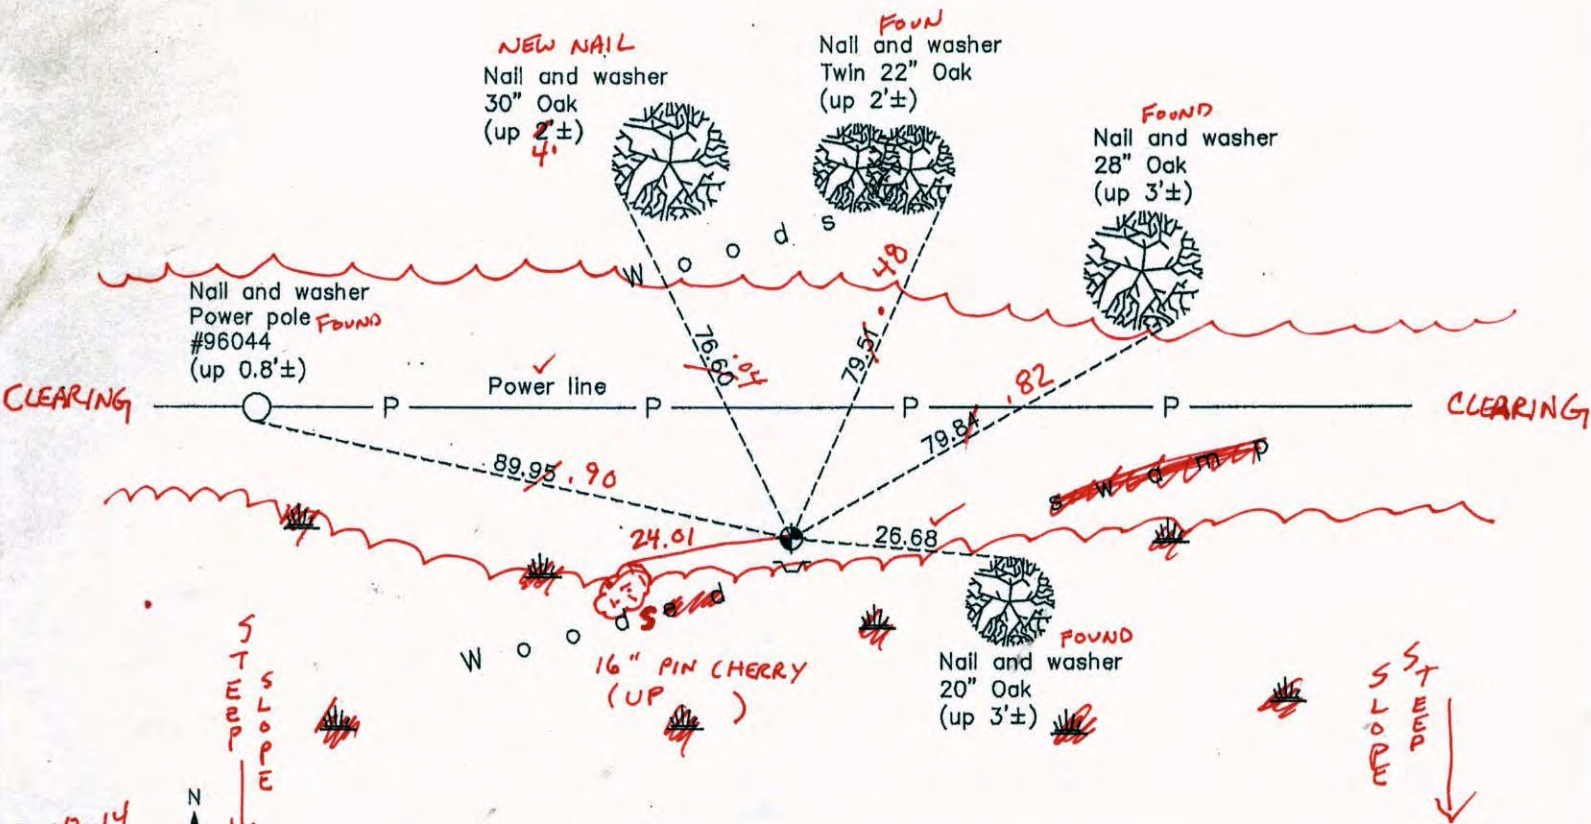 NEW NAIL
Nail and washer
30" Oak
(up 2'±)
4'
FOUN
Nail and washer
Twin 22" Oak
(up 2'±)
FOUND
Nail and washer
28" Oak
(up 3'±)
Woods
Nail and washer
Power pole FOUND
#96044
(up 0.8'±)
76.60
79.51 .48
CLEARING
Power line
P
P
P
P
CLEARING
79.84 .82
89.95 .90
swamp
24.01
26.68
Wooded
s
16" PIN CHERRY
(UP )
FOUND
Nail and washer
20" Oak
(up 3'±)
STEEP
SLOPE
STEEP
SLOPE
N